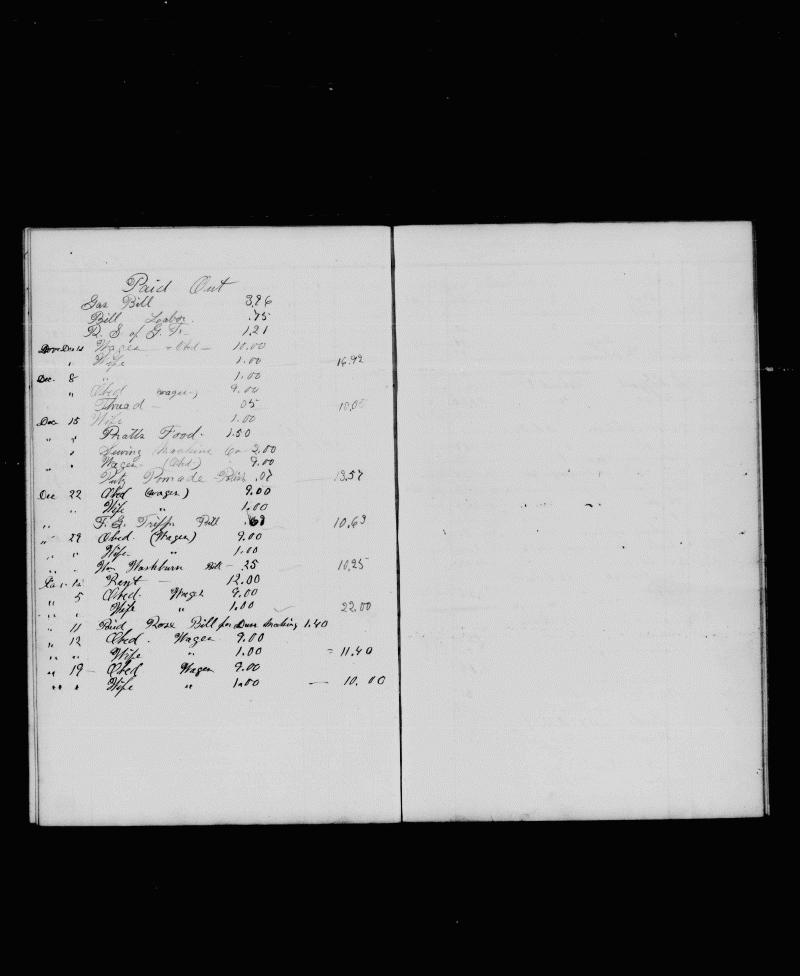 Paid Out
Gas Bill 3.96
Bill Labor .75
R. S of G. T. 1.21
Dec 1st Wages Obed 10.00
" Wife 1.00 — 16.92
Dec. 8 " 1.00
" Obed wages 9.00
Thread — 05 10.05
Dec 15 Wife 1.00
" " Pratts Food. 1.50
" Sewing Machine Co 2.00
" " Wages (Obed) 9.00
Putz Pomade Polish .07 — 13.57
Dec 22 Obed (wages) 9.00
" Wife " 1.00
" F. G. Tripp Bill .63 — 10.63
" 29 Obed. (Wages) 9.00
" " Wife. " 1.00
" " Wm Washburn Bill — .25 — 10.25
Jan. 1st Rent — 12.00
" 5 Obed. Wages 9.00
" " Wife " 1.00 22.00
" 11 Paid Rose Bill for Dress Making 1.40
" 12 Obed. Wages 9.00
" " Wife " 1.00 = 11.40
" 19 — Obed Wages 9.00
" " Wife " 1.00 — 10.00